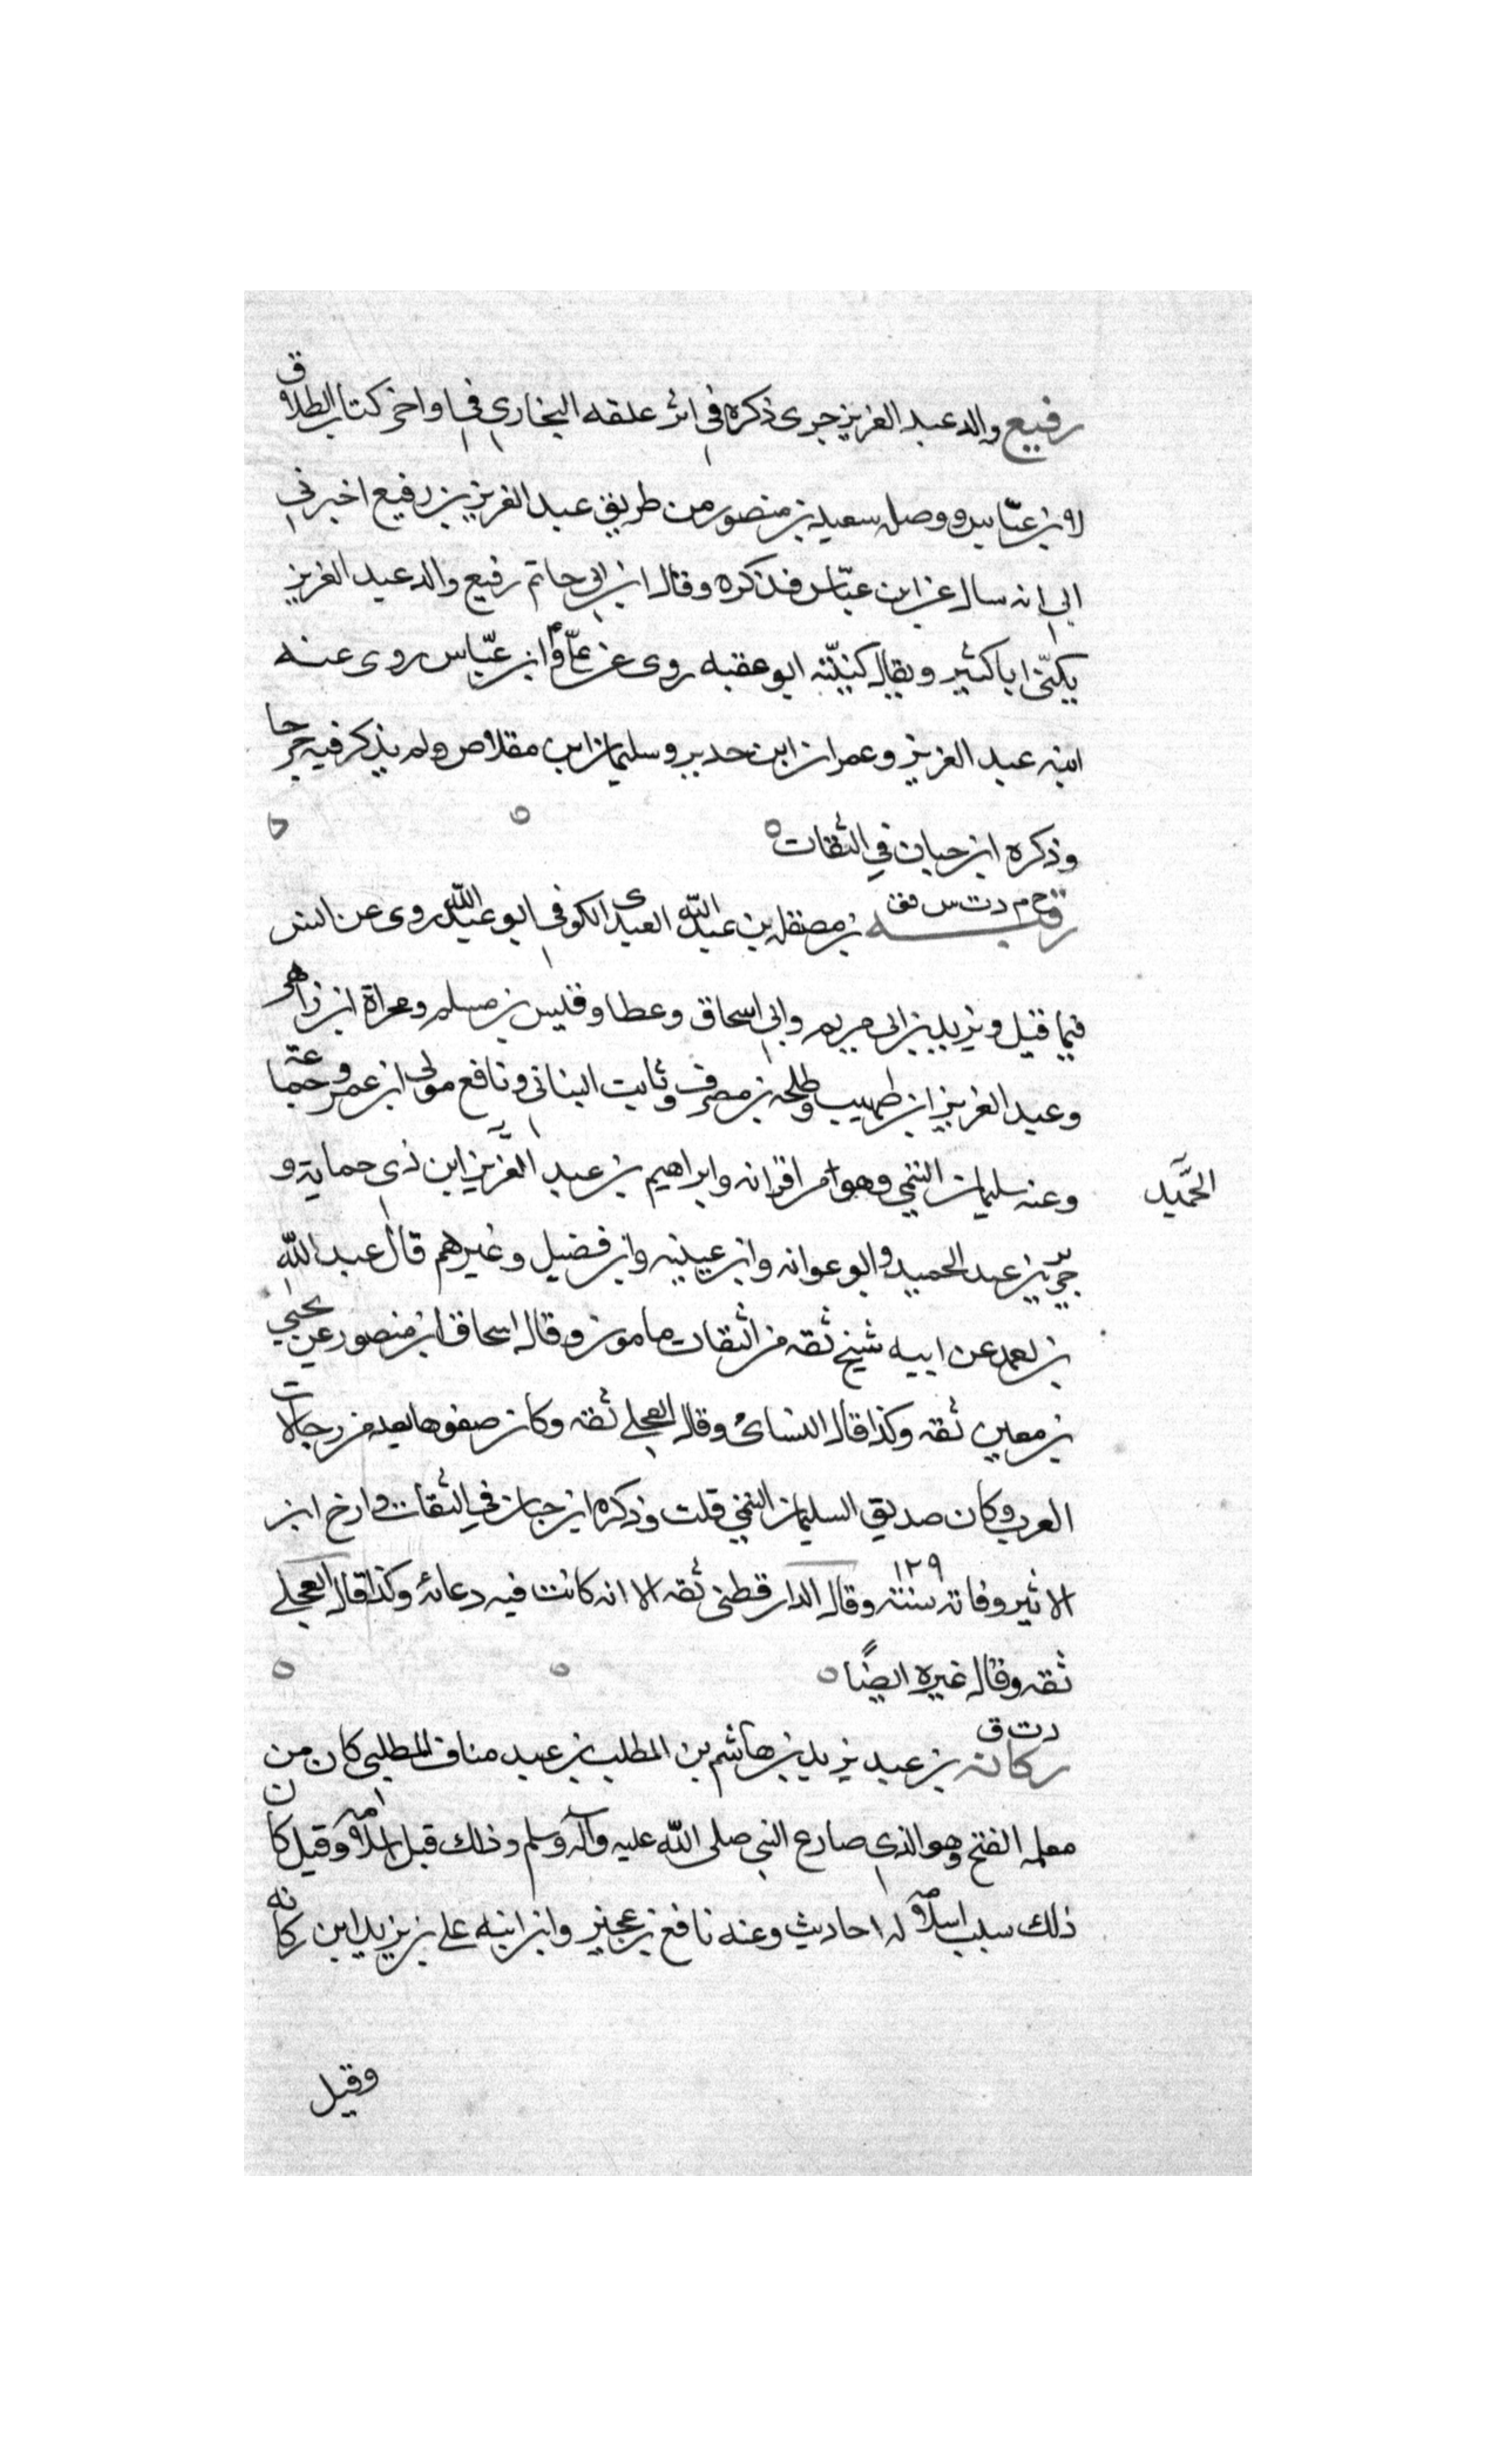 رفيع والد عبد العزيز جرى ذكره في اثر علقه البخاري في اواخر كتاب الطلاق
لابن عباس ووصله سعيد بن منصور من طريق عبد العزيز بن رفيع اخبرني
ابي انه سال عن ابن عباس فذكره وقال ابن ابي حاتم رفيع والد عبد العزيز
يكنى ابا كثير ويقال كنيته ابو عقبه روى عن علي وابن عباس روى عنه
ابنه عبد العزيز وعمران ابن حدير وسليمان ابن مقلاص ولم يذكر فيه جرحا
وذكره ابن حبان في الثقات
خ م د ت س فق
رقبه بن مصقله بن عبد الله العبدى الكوفي ابو عبد الله روى عن انس
فيما قيل ويزيد بن ابى مريم وابي اسحاق وعطا وقيس بن مسلم ومجراة ابن زاهر
وعبد العزيز ابن صهيب وطلحه بن مصرف وثابت البنانى ونافع مولى ابن عمر وجماعة
وعنه سليمان التيمي وهو من اقرانه وابراهيم بن عبد العزيز ابن ذى حماية و
الحميد
جرير بن عبد الحميد وابو عوانه وابن عيينه وابن فضيل وغيرهم قال عبد الله
بن احمد عن ابيه شيخ ثقه من الثقات مامون وقال اسحاق ابن منصور عن يحيى
بن معين ثقه وكذا قال النسائ وقال العجلي ثقه وكان صفوها يعد من رجالات
العرب وكان صديق السليمان التيمي قلت وذكره ابن حبان في الثقات وارخ ابن
الاثير وفاته سنة ١٢٩ وقال الدارقطنى ثقه الا انه كانت فيه دعابة وكذا قال العجلي
ثقه وقال غيره ايضًا
د ت ق
ركانه بن عبد يزيد بن هاشم بن المطلب بن عبد مناف المطلبى كان من
مسلمه الفتح وهو الذي صارع النبى صلى الله عليه وآله وسلم وذلك قبل اسلامه وقيل كان
ذلك سبب اسلامه له احاديث وعنه نافع بن عجير وابن ابنه علي بن يزيد ابن ركانه
وقيل